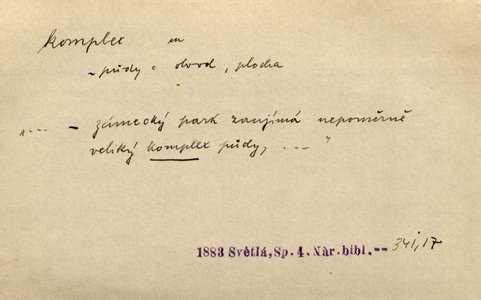 komplex m
~ půdy = obvod, plocha
„... - zámecký park zaujímá nepoměrně
veliký komplex půdy, ... "
1883 Světlá, Sp. 4. Nár. bibl. -- 341,17